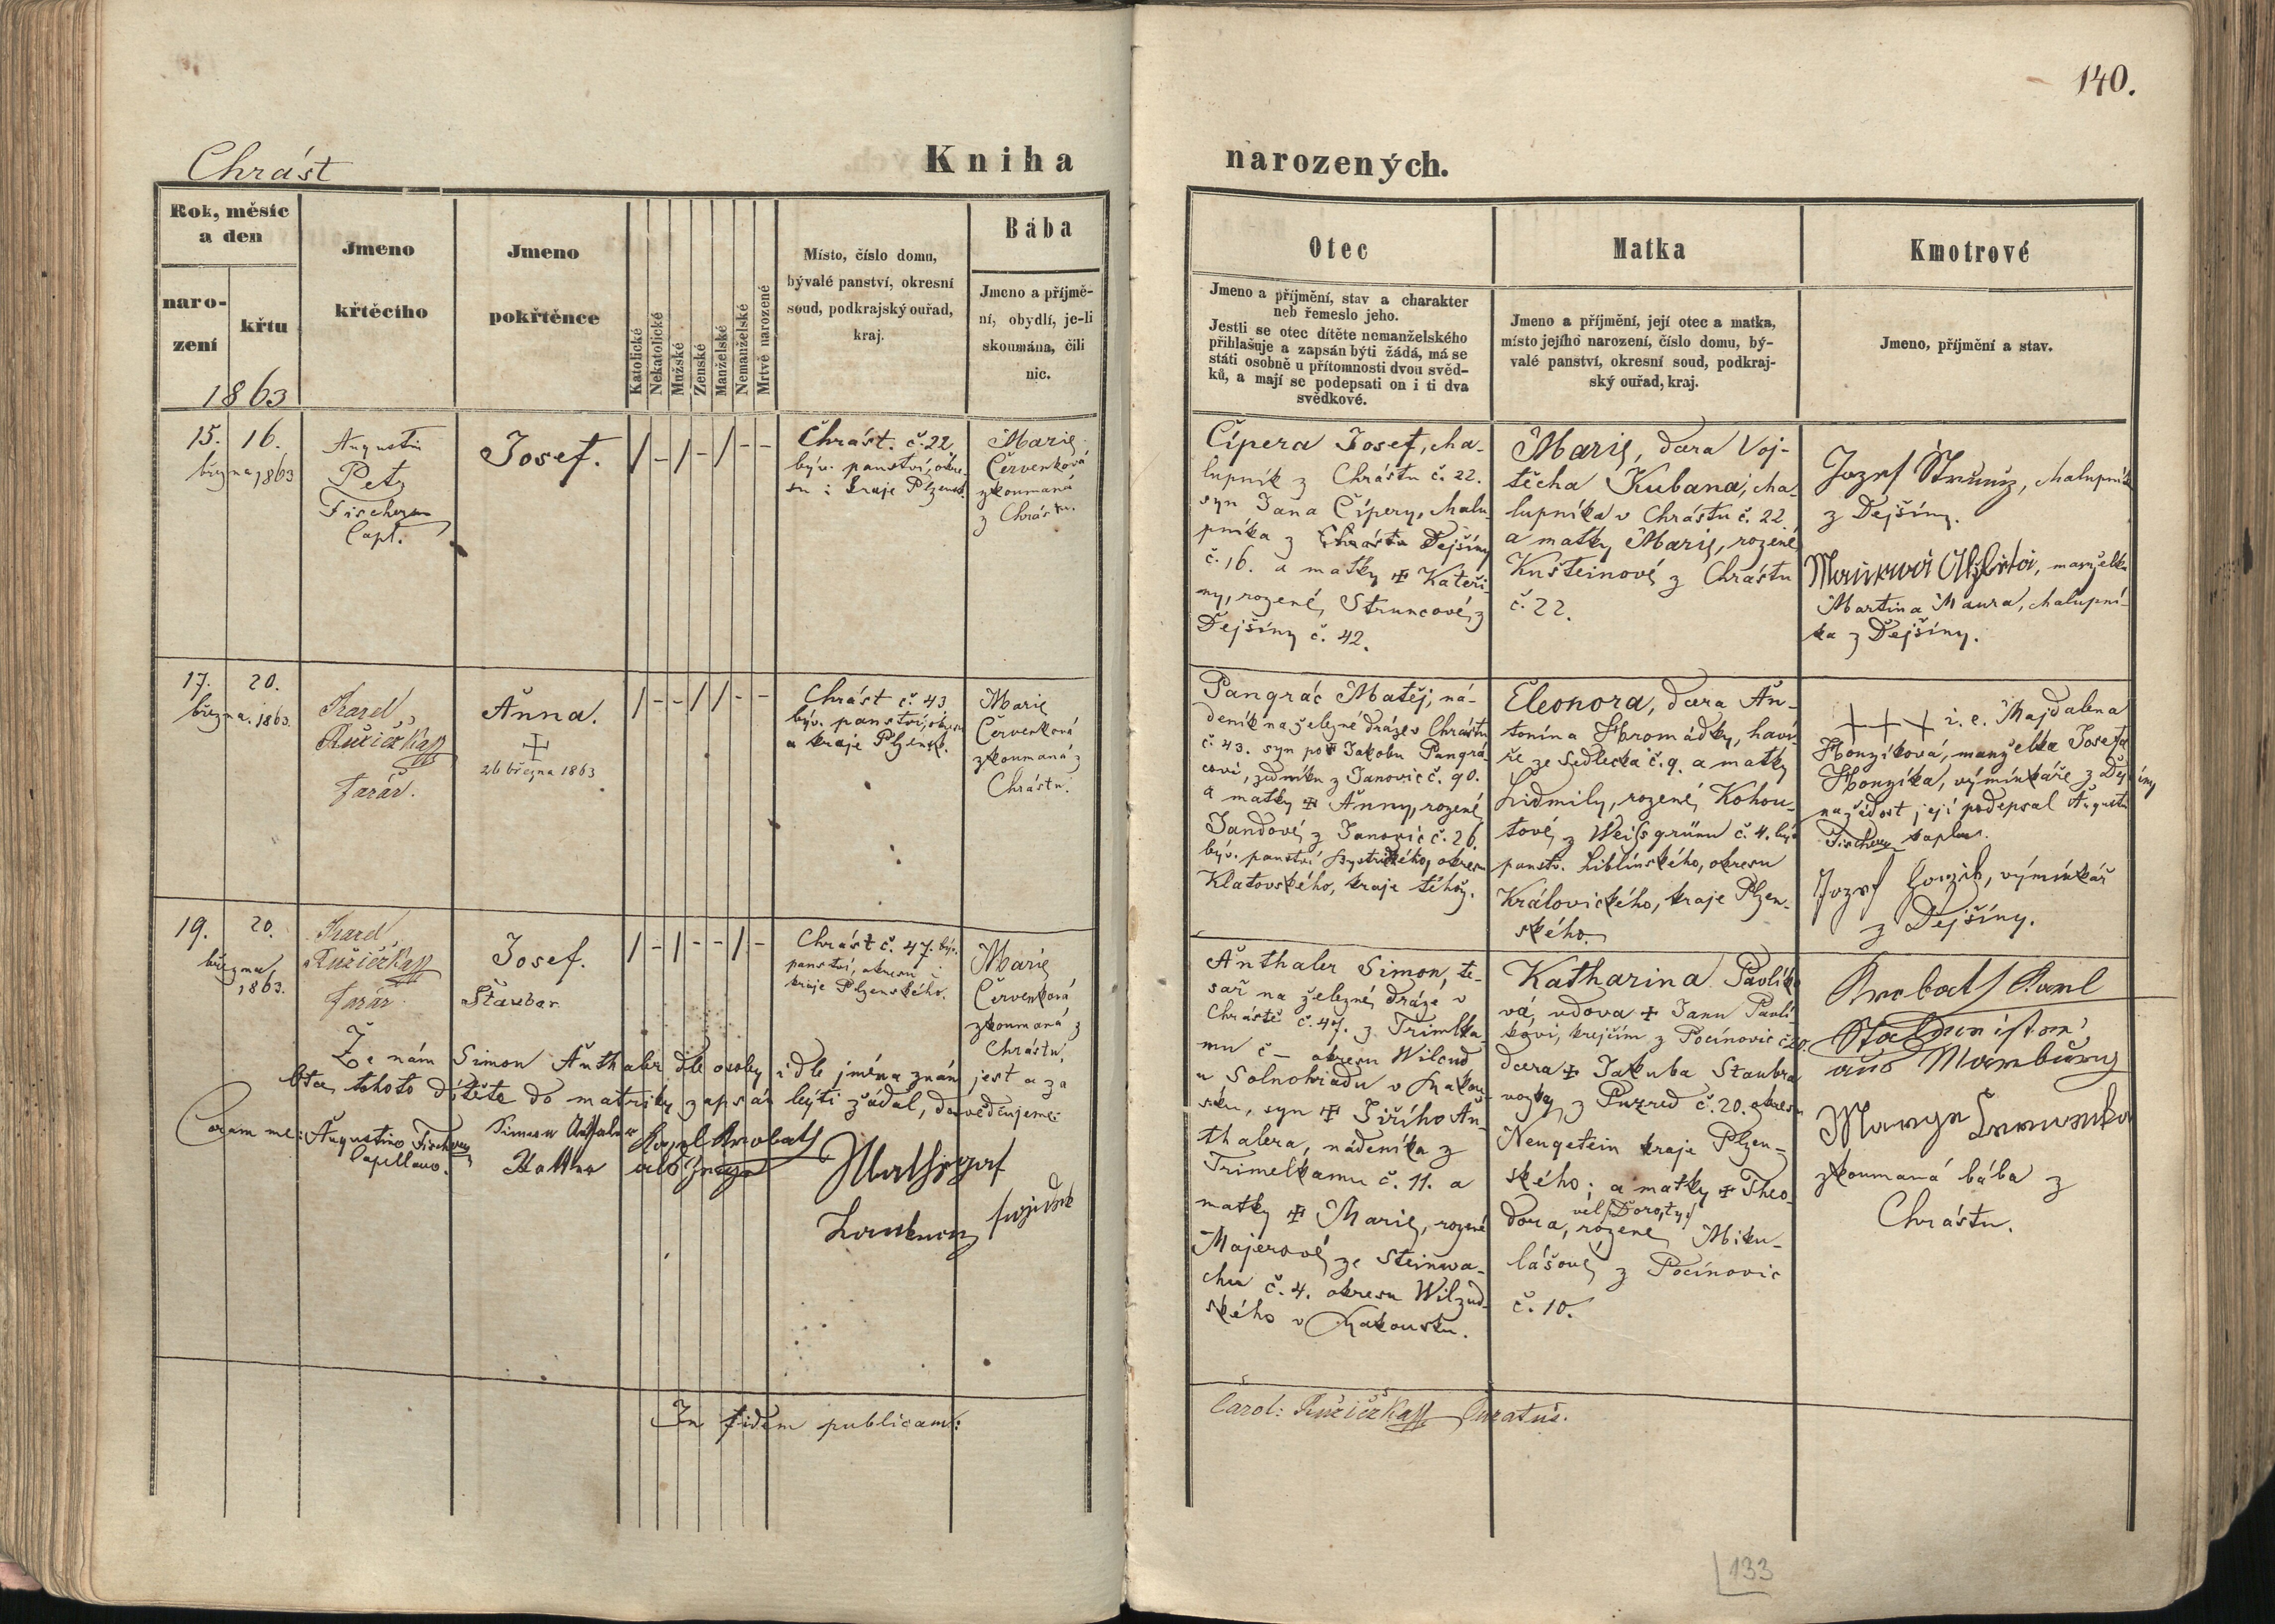 140.
Chrást
Kniha
narozených.
Rok, měsíc
a den
naro-
zení
křtu
1863
Jmeno
křtěcího
Jmeno
pokřtěnce
Katolické
Nekatolické
Mužské
Zenské
Manželské
Nemanželské
Mrtvě narozené
Místo, číslo domu,
bývalé panství, okresní
soud, podkrajský ouřad,
kraj.
Bába
Jmeno a příjmě-
ní, obydlí, je-li
skoumána, čili
nic.
Otec
Jmeno a příjmění, stav a charakter
neb řemeslo jeho.
Jestli se otec dítěte nemanželského
přihlašuje a zapsán býti žádá, má se
státi osobně u přítomnosti dvou svěd-
ků, a mají se podepsati on i ti dva
svědkové.
Matka
Jmeno a příjmění, její otec a matka,
místo jejího narození, číslo domu, bý-
valé panství, okresní soud, podkraj-
ský ouřad, kraj.
Kmotrové
Jmeno, příjmění a stav.
15. 16.
března 1863
Augustin
Petz
Fischer
Capl.
Josef.
/ - / - / - -
Chrást. č. 22
býv. panství, okre-
su i kraje Plzensk.
Marie
Červenková
zkoumaná
z Chrástu.
Čípera Josef, cha-
lupník z Chrástu č. 22.
syn Jana Čípery, chalu-
pníka z Chrástu Dejšíny
č. 16. a matky + Kateři-
ny, rozené Struncové z
Dejšíny č. 42.
Marie, dcera Voj-
těcha Kubana, cha-
lupníka v Chrástu č. 22.
a matky Marie, rozené
Kušteinové z Chrástu
č. 22.
Jozef Strunz, chalupník
z Dejšíny.
Maurová Alžběta, manželka
Martina Maura, chalupní-
ka z Dejšíny.
17. 20.
března. 1863.
Karel
Růžička
Farář.
Anna.
+
26 března 1863
/ - - / / - -
Chrást č. 43
býv. panství, okresu
a kraje Plzensk.
Marie
Červenková
zkoumaná z
Chrástu.
Pangrác Matěj, ná-
deník na železné dráze v Chrástu
č. 43. syn po + Jakobu Pangrá-
covi, zedníku z Janovic č. 90.
a matky + Anny, rozené
Jandové z Janovic č. 26.
býv. panství Bystrického, okresu
Klatovského, kraje téhož.
Eleonora, dcera An-
tonína Hromádky, haví-
ře ze Sedlecka č. 9. a matky
Lidmily, rozené Kohou-
tové, z Weisgrünu č. 4. býv.
panstv. Liblínského, okresu
Královického, kraje Plzen-
ského.
+++ i. e. Majdalena
Honzíková, manželka Josefa
Honzíka, výminkáře z Dejšíny
na žádost její podepsal Augustin
Fischer kaplan.
Jozef Honzik, výminkář
z Dejšíny.
19. 20.
března
1863.
Karel
Růžička
Farář
Josef.
Štaubar
/ - / - - / -
Chrást č. 47. býv.
panství, okresu i
kraje Plzenského.
Marie
Červenková
zkoumaná z
Chrástu.
Anthaler Simon, te-
sař na železné dráze v
Chrástě č. 47. z Trimlka-
mu č – okresu Wilcud
u Solnohradu v Rakou-
sku, syn + Jiřího An-
thalera, nádeníka z
Trimelkamu č. 11. a
matky + Marie, rozené
Majerové ze Steinwa-
chu č. 4. okresu Wilzud-
ského v Rakousku.
Katharina Pavlíko-
vá, vdova + Janu Pavlí-
kovi, krejčím z Pocínovic č. 20.
dcera + Jakuba Staubra
z Puzred č. 20. okresu
Neugetein kraje Plzen-
ského; a matky + Theo-
vel Doroty
dora, rozené Miku-
lášové z Pocínovic
č. 10.
Krobath Karl
aus Marburg
Marye
zkoumaná bába z
Chrástu.
Že nám Simon Anthaler dle osoby i dle jména znám jest a za
otce tohoto dítěte do matriky zapsán býti žádal, dosvědčujeme:
Coram me: Augustino Fischer
Capellano.
Simon Anthaler
Vatter
Karl Krobath
als Zeuge
In fidem publicam:
Carol: Růžička Curatus.
133